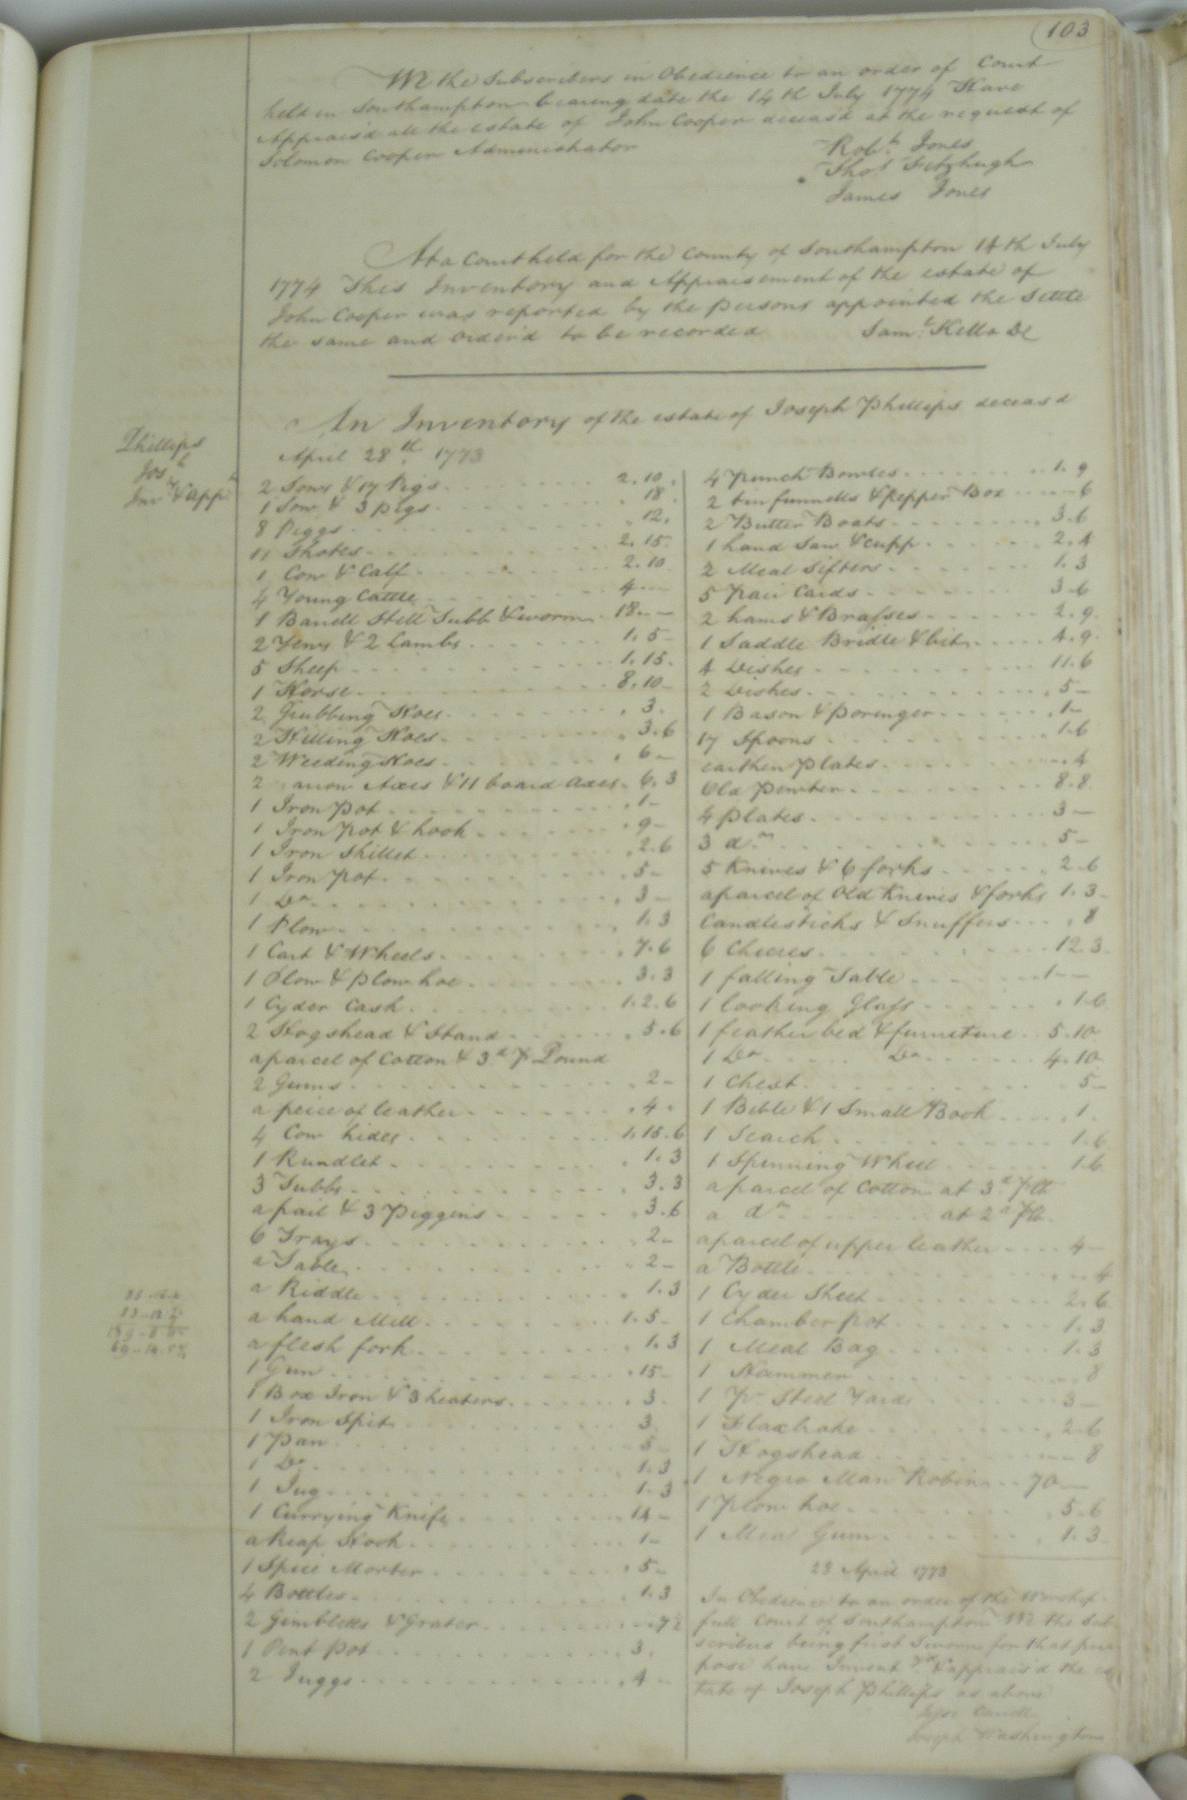 103
We the Subscribers in Obedience to an order of Court
held in Southampton bearing date the 14th July 1774 Have
Appraisd all the estate of John Cooper deceasd at the request of
Solomon Cooper Administrator
Robt. Jones
Thos Fitzhugh
James Jones
At a Court held for the County of Southampton 14th July
1774 This Inventory and Appraisement of the estate of
John Cooper was reported by the persons appointed the Settle
the same and Orderd to be recorded Saml. Kello DC
An Inventory of the estate of Joseph Phillips deceasd
April 28th 1773
Phillips
Josh
Inv y & appt
2 Sows & 17 Pigs 2.10.
1 Sow & 3 pigs 18
8 Piggs 12.
11 Shotes 2.15.
1 Cow & Calf 2.10
4 Young Cattle 4 —
1 Barrell Still Tubb & worm 18 — —
2 Yews & 2 Lambs 1.5 —
5 Sheep 1.15.
1 Horse 8.10 —
2 Grubbing Hoes 3.
2 Hilling Hoes 3.6
2 Weeding Hoes 6 —
2 narrow Axes & 11 board axes 6.3
1 Iron pot 1 —
1 Iron pot & hook 9 —
1 Iron Skillet 2.6
1 Iron pot 5 —
1 Do 3 —
1 Plow 1.3
1 Cart & Wheels 7.6
1 Plow & plow hoe 3.3
1 Cyder Cask 1.2.6
2 Hogshead & Stand 5.6
a parcel of Cotton & 3d p Pound
2 Gums 2 —
a peice of leather 4.
4 Cow hides 1.15.6
1 Rundlet 1.3
3 Tubbs 3.3
a pail & 3 Piggins 3.6
6 Trays 2 —
a Table 2 —
a Riddle 1.3
a hand Mill 1.5 —
a flesh fork 1.3
1 Gun 15 —
1 Box Iron & 3 heaters 3.
1 Iron Spit 3
1 Pan 5
1 Do 1.3
1 Jug 1.3
1 Currying Knife 14 —
a Reap Hook 1 —
1 Spice Morter 5 —
4 Bottles 1.3
2 Gimbletts & Grater 7½
1 Pint Pot 3.
2 Juggs 4 —
4 Punch Bowles 1.9
2 tin funnells & pepper Box 6
2 Butter Boats 3.6
1 hand Saw & cupp 2.4
2 Meal Sifters 1.3
5 pair Cards 3.6
2 hams & Brasses 2.9
1 Saddle Bridle & bit 4.9
4 Dishes 11.6
2 Dishes 5 —
1 Bason & porenger 1 —
17 Spoons 1.6
earthen plates 4
Old Pewter 8.8
4 plates 3 —
3 do 5 —
5 Knives & 6 forks 2.6
a parcel of Old Knives & forks 1.3 —
Candlesticks & Snuffers 8
6 Cheires 12.3
1 falling Table 1 — —
1 looking Glass 1.6
1 feather bed & furniture 5.10
1 Do Do 4.10
1 Chest 5 —
1 Bible & 1 Small Book 1.
1 Search 1.6
1 Spinning Wheel 1.6
a parcel of Cotton at 3d p lb
a do at 2d p lb
a parcel of upper leather 4 —
a Bottle 4
1 Cyder Sheet 2.6
1 Chamber pot 1.3
1 Meal Bag 1.3
1 Hammer 8
1 pr Steel Yards 3 —
1 Flaxhake 2.6
1 Hogshead 8
1 Negro Man Robin 70 —
1 Plow hoe 5.6
1 Meal Gum 1.3
23 April 1773
In Obedience to an order of the Worship-
full Court of Southampton We the Sub-
scribers being first Sworn for that pur-
pose have Inventyd & appraisd the es-
tate of Joseph Phillips as above
Joseph Washington